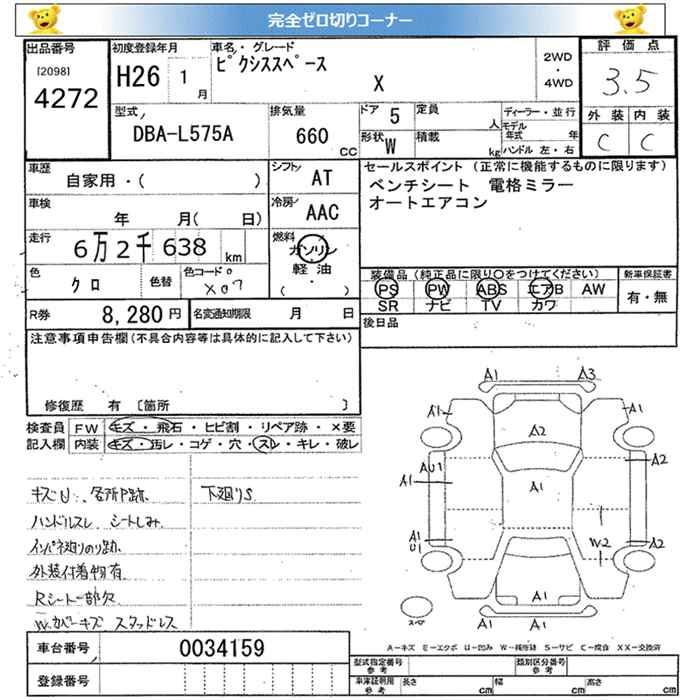 完全ゼロ切りコーナー
出品番号
[2098]
4272
初度登録年月
H26 1月
車名・グレード
ピクシススペース
X
2WD
・
4WD
評価点
3.5
外装 内装
C C
型式
DBA-L575A
排気量
660
CC
ドア 5
形状 W
定員 人
積載 kg
ディーラー・並行
モデル年式 年
ハンドル 左・右
車歴
自家用・( )
シフト
AT
車検
年 月( 日)
冷房
AAC
走行
6万2千638 km
燃料
ガソリン
軽油
( ・ )
色
クロ
色替
色コードo
X07
R券
8,280円
名変通知期限 月 日
セールスポイント (正常に機能するものに限ります)
ベンチシート 電格ミラー
オートエアコン
装備品(純正品に限り○をつけてください)
PS PW ABS エアB AW
SR ナビ TV カワ
新車保証書
有・無
後日品
注意事項申告欄(不具合内容等は具体的に記入して下さい)
修復歴 有 [箇所 ]
検査員記入欄
FW キズ・飛石・ヒビ割・リペア跡・×要
内装 キズ・汚レ・コゲ・穴・スレ・キレ・破レ
キズU 各所P跡
下廻りS
ハンドルスレ シートしみ
インパネ廻りのり跡
外装付着物有
Rシート一部欠
W.カバーキズ スタッドレス
車台番号
0034159
登録番号
A1 A3
A1 A1
A2
AU1 A2
A1 A1
A1
U1 W2 A2
A1
A1
スペア
A-キズ E-エクボ U-凹み W-補修跡 S-サビ C-腐食 XX-交換済
型式指定番号
参考
類別区分番号
参考
車庫証明用
参考
長さ cm
幅 cm
高さ cm